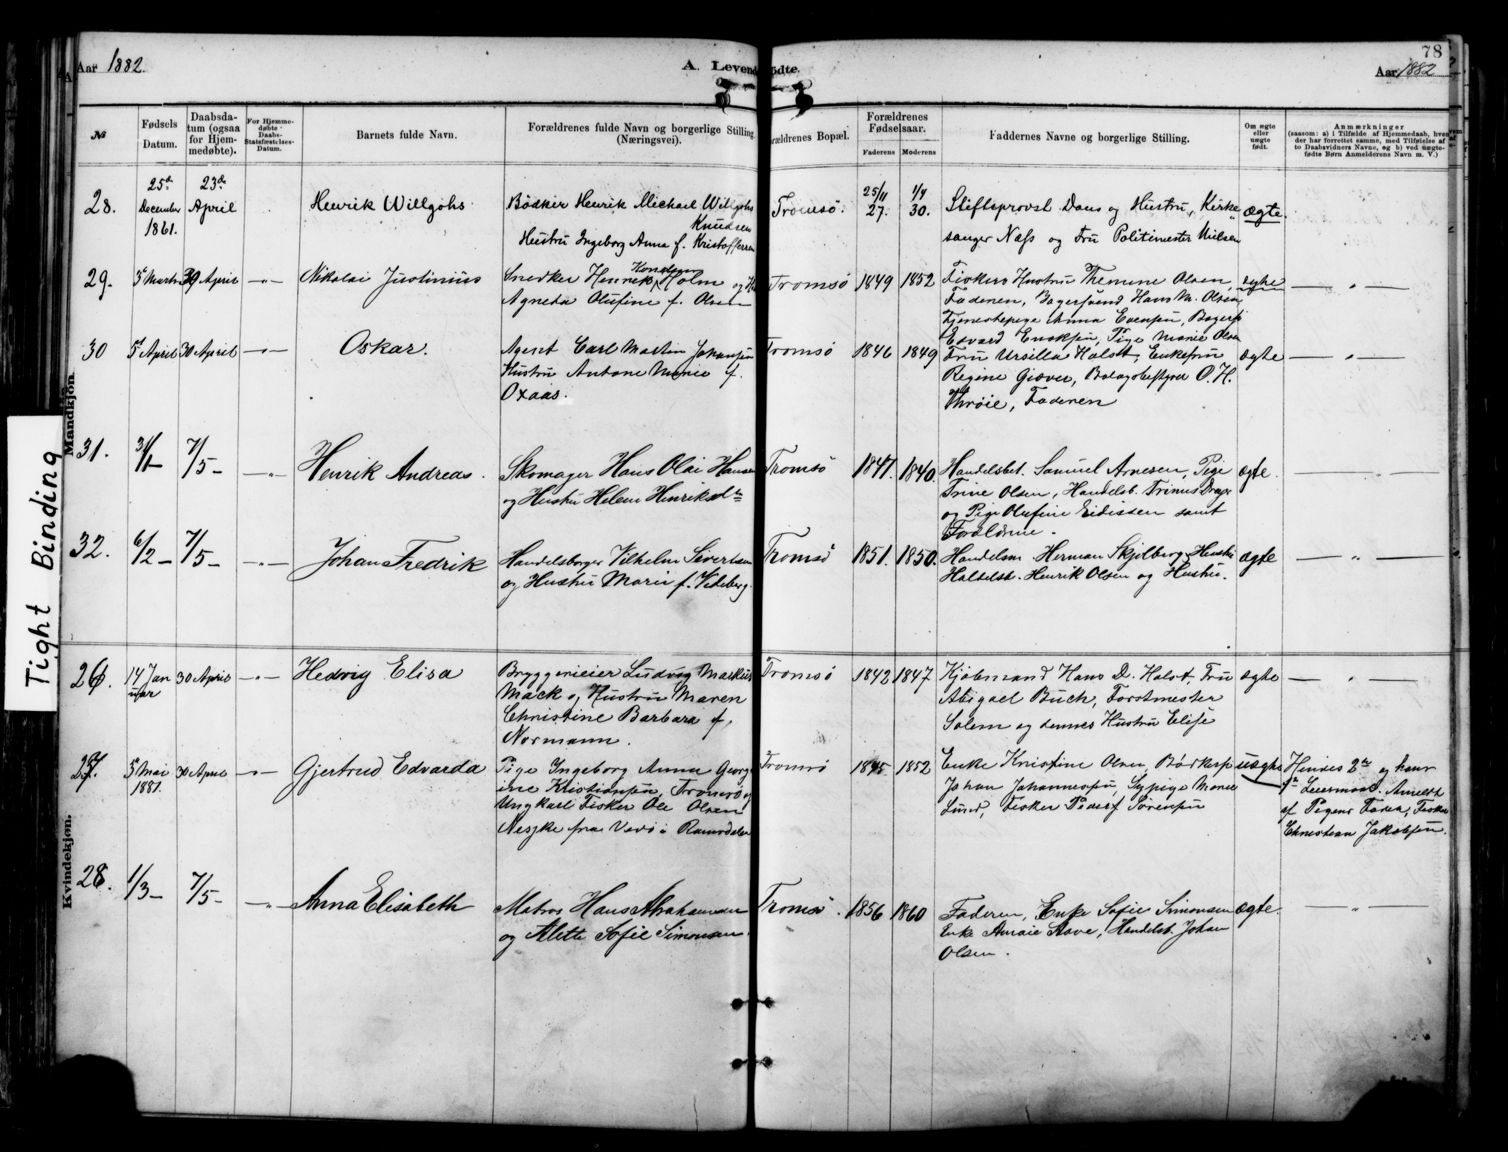 78
Aar 1882.
A. Levendefødte.
Aar 1882
№
Fødsels Datum.
Daabsdatum (ogsaa for Hjemmedøbte).
For Hjemmedøbte · Daabs-Statsfæstelses-Datum.
Barnets fulde Navn.
Forældrenes fulde Navn og borgerlige Stilling (Næringsvei).
Forældrenes Bopæl.
Forældrenes Fødselsaar.
Faderens
Moderens
Faddernes Navne og borgerlige Stilling.
Om ægte eller uægte født.
Anmærkninger
(saasom: a) i Tilfælde af Hjemmedaab, hven
der har forrettet samme, med Tilføielse af
to Daabsvidners Navne, og b) ved uægte-
fødte Børn Anmelderens Navn m. V.)
Mandkjøn.
Tight Binding
28.
25de December 1861.
23de April
Henrik Willgohs
Bødker Henrik Michael Willgohs
Knudsen
Hustru Ingeborg Anna f. Kristoffersen
Tromsø.
25/11 27.
1/7 30.
Stiftsprovst Daus og Hustru, Kirke-
sanger Næss og Fru Politimester Nielsen
ægte
29.
3 Marts
30 April
—"—
Nikolai Justinius
Snedker Henrik Holm og
Agneta Olufine f. Olsen
Tromsø
1849
1852
Fiskers Hustru Themine Olsen,
Faderen, Bagersvend Hans M. Olsen
Tjenestepige Anna Evensen,
Edvard Pige Marie Olsen
ægte
— " —
30
5 April
30 April
—"—
Oskar.
Agent Carl Martin Johansen
Hustru Antone Marie f.
Oxaas.
Tromsø
1846
1849
Fru Ursilla Holst, Enkefru
Regine Giæver, O. H.
Throie, Faderen
ægte
— " —
31.
7/5 —
—"—
Henrik Andreas.
Skomager Hans Olai Hansen
og Hustru Helene
Tromsø
1847.
1840.
Handelsbet. Samuel Arnesen, Pige
Trine Olsen, Handelsb.
og Pige Olufine samt
Forældrene.
ægte.
— " —
32.
6/2 —
7/5 —
—"—
Johan Fredrik
Handelsborger Vilhelm Sivertsen
og Hustru Marie f.
Tromsø
1851.
1850.
Handelsm Herman Skjelberg, Hustru
Henrik Olsen og Hustru.
ægte
— " —
26.
14 Januar
30 April
—"—
Hedvig Elisa
Bryggerieier Ludvig Markus
Mack og Hustru Maren
Christine Barbara f.
Normann.
Tromsø
1842
1847
Kjøbmand Hans D. Holst, Fru
Abigael Buch, Forstmester
og dennes Hustru Elise
ægte
— " —
27.
5 Mai 1881.
30 April
—"—
Gjertrud Edvarda
Pige Ingeborg Anna Georg-
ine Kristiansen, Tromsø og
Ungkarl Fisker Ole Olsen
fra i Romsdalen
Tromsø
1845
1852
Enke Kristine Olsen,
Johan Johannesen, Sypige Marie
Lund, Fisker Peder Sørensen
uægte
Hendes 2de og hans
1ste Leiermaal. Anmeldt
af Pigens Fader, Fisker
Christian Jakobsen.
Kvindekjøn.
28.
1/3 —
7/5 —
—"—
Anna Elisabeth
Matros Hans Abrahamsen
og Alette Sofie Simonsen
Tromsø.
1856
1860
Faderen, Enke Sofie Simonsen
Enke Handelsb. Johan
Olsen.
ægte.
— " —